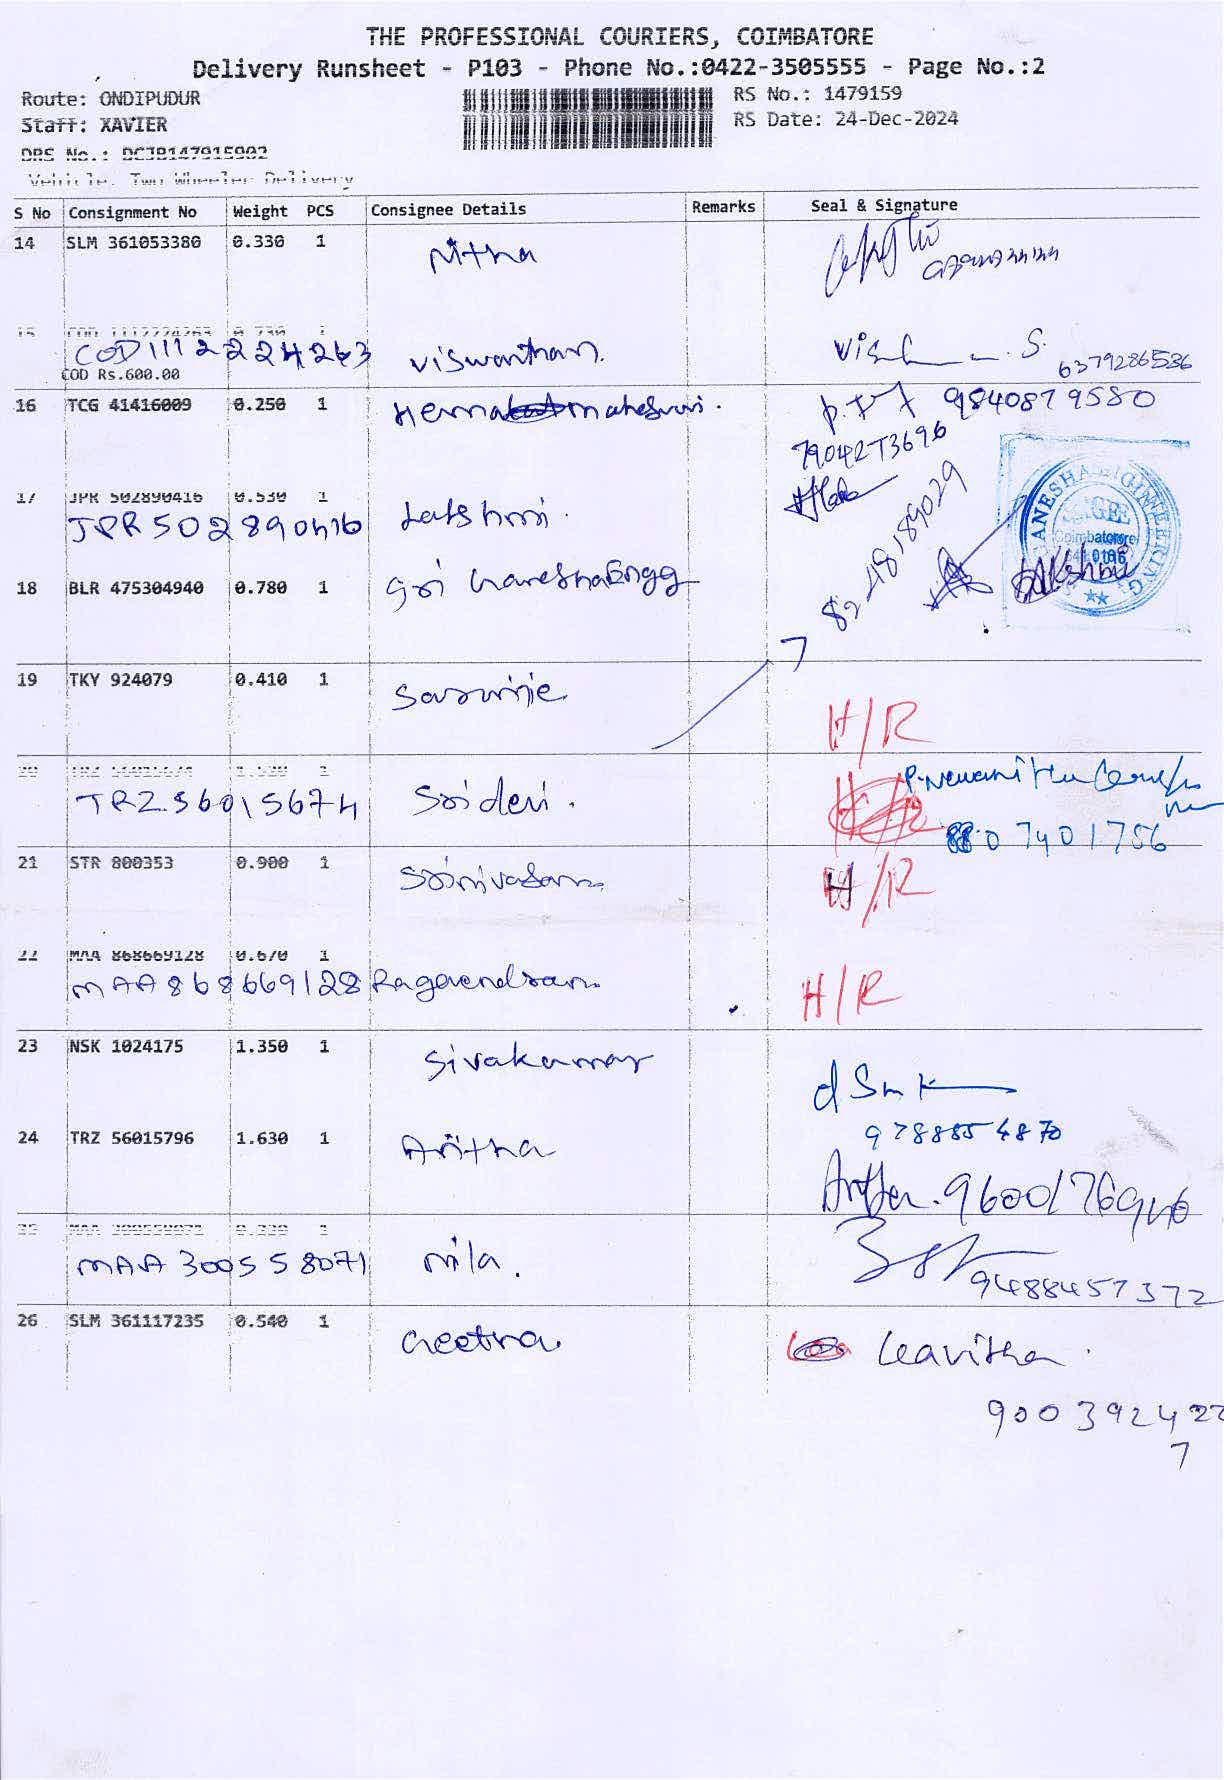 THE PROFESSIONAL COURIERS, COIMBATORE
Delivery Runsheet - P103 - Phone No.:0422-3505555 - Page No.:2
Route: ONDIPUDUR
RS No.: 1479159
Staff: XAVIER
RS Date: 24-Dec-2024
DRS No.: DCJB147915902
Vehicle: Two Wheeler Delivery
S No Consignment No Weight PCS Consignee Details Remarks Seal & Signature
14 SLM 361053380 0.330 1 Nitha
15 COD 1112224263 0.730 1
COD1112224263 Viswanthan. S.
6379286586
COD Rs.600.00
16 TCG 41416009 0.250 1 Hema maheswari. 9840879580
79042T3696
17 JPR 502890416 0.530 1
JPR502890416 Lakshmi.
82-48189029
Coimbatore
18 BLR 475304940 0.780 1 Sri GaneshaEngg Lakshmi
19 TKY 924079 0.410 1
H/R
20 1
TRZ56015674 Sridevi.
8807401756
21 STR 800353 0.900 1 Srinivasan H/R
22 MAA 868669128 0.670 1
MAA868669128 Ragavendran. H/R
23 NSK 1024175 1.350 1 Sivakumar
9788854870
24 TRZ 56015796 1.630 1
9600176946
25 MAA 300558071 0.330 1
MAA 300558071 Nila.
9488457372
26 SLM 361117235 0.540 1 Geetha Kavitha.
900392422
7